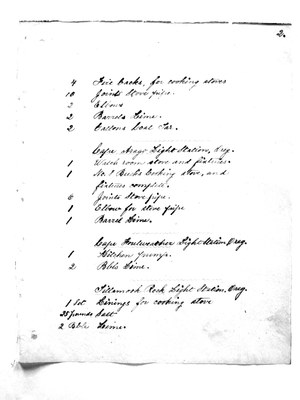 2.
4 Fire backs, for cooking stoves
10 Joints Stove pipe.
2 Elbows
2 Barrels Lime.
2 Gallons Coal Tar.
Cape Arago Light Station, Oreg.
1 Watch room stove and fixtures.
1 No. 8 Cooking Stove, and
fixtures complete.
6 Joints Stove pipe.
1 Elbow for stove pipe
1 Barrel Lime.
Cape Foulweather Light Station, Oreg.
1 Kitchen pump.
2 Bbls Lime.
Tillamook Rock Light Station, Oreg.
1 Set Linings for cooking stove
25 pounds Salt
2 Bbls Lime.